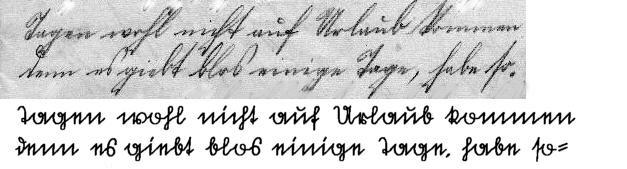 Tagen wohl nicht auf Urlaub kommen
denn es giebt blos einige Tage, habe so-
Tagen wohl nicht auf Urlaub kommen
denn es giebt blos einige Tage, habe so=